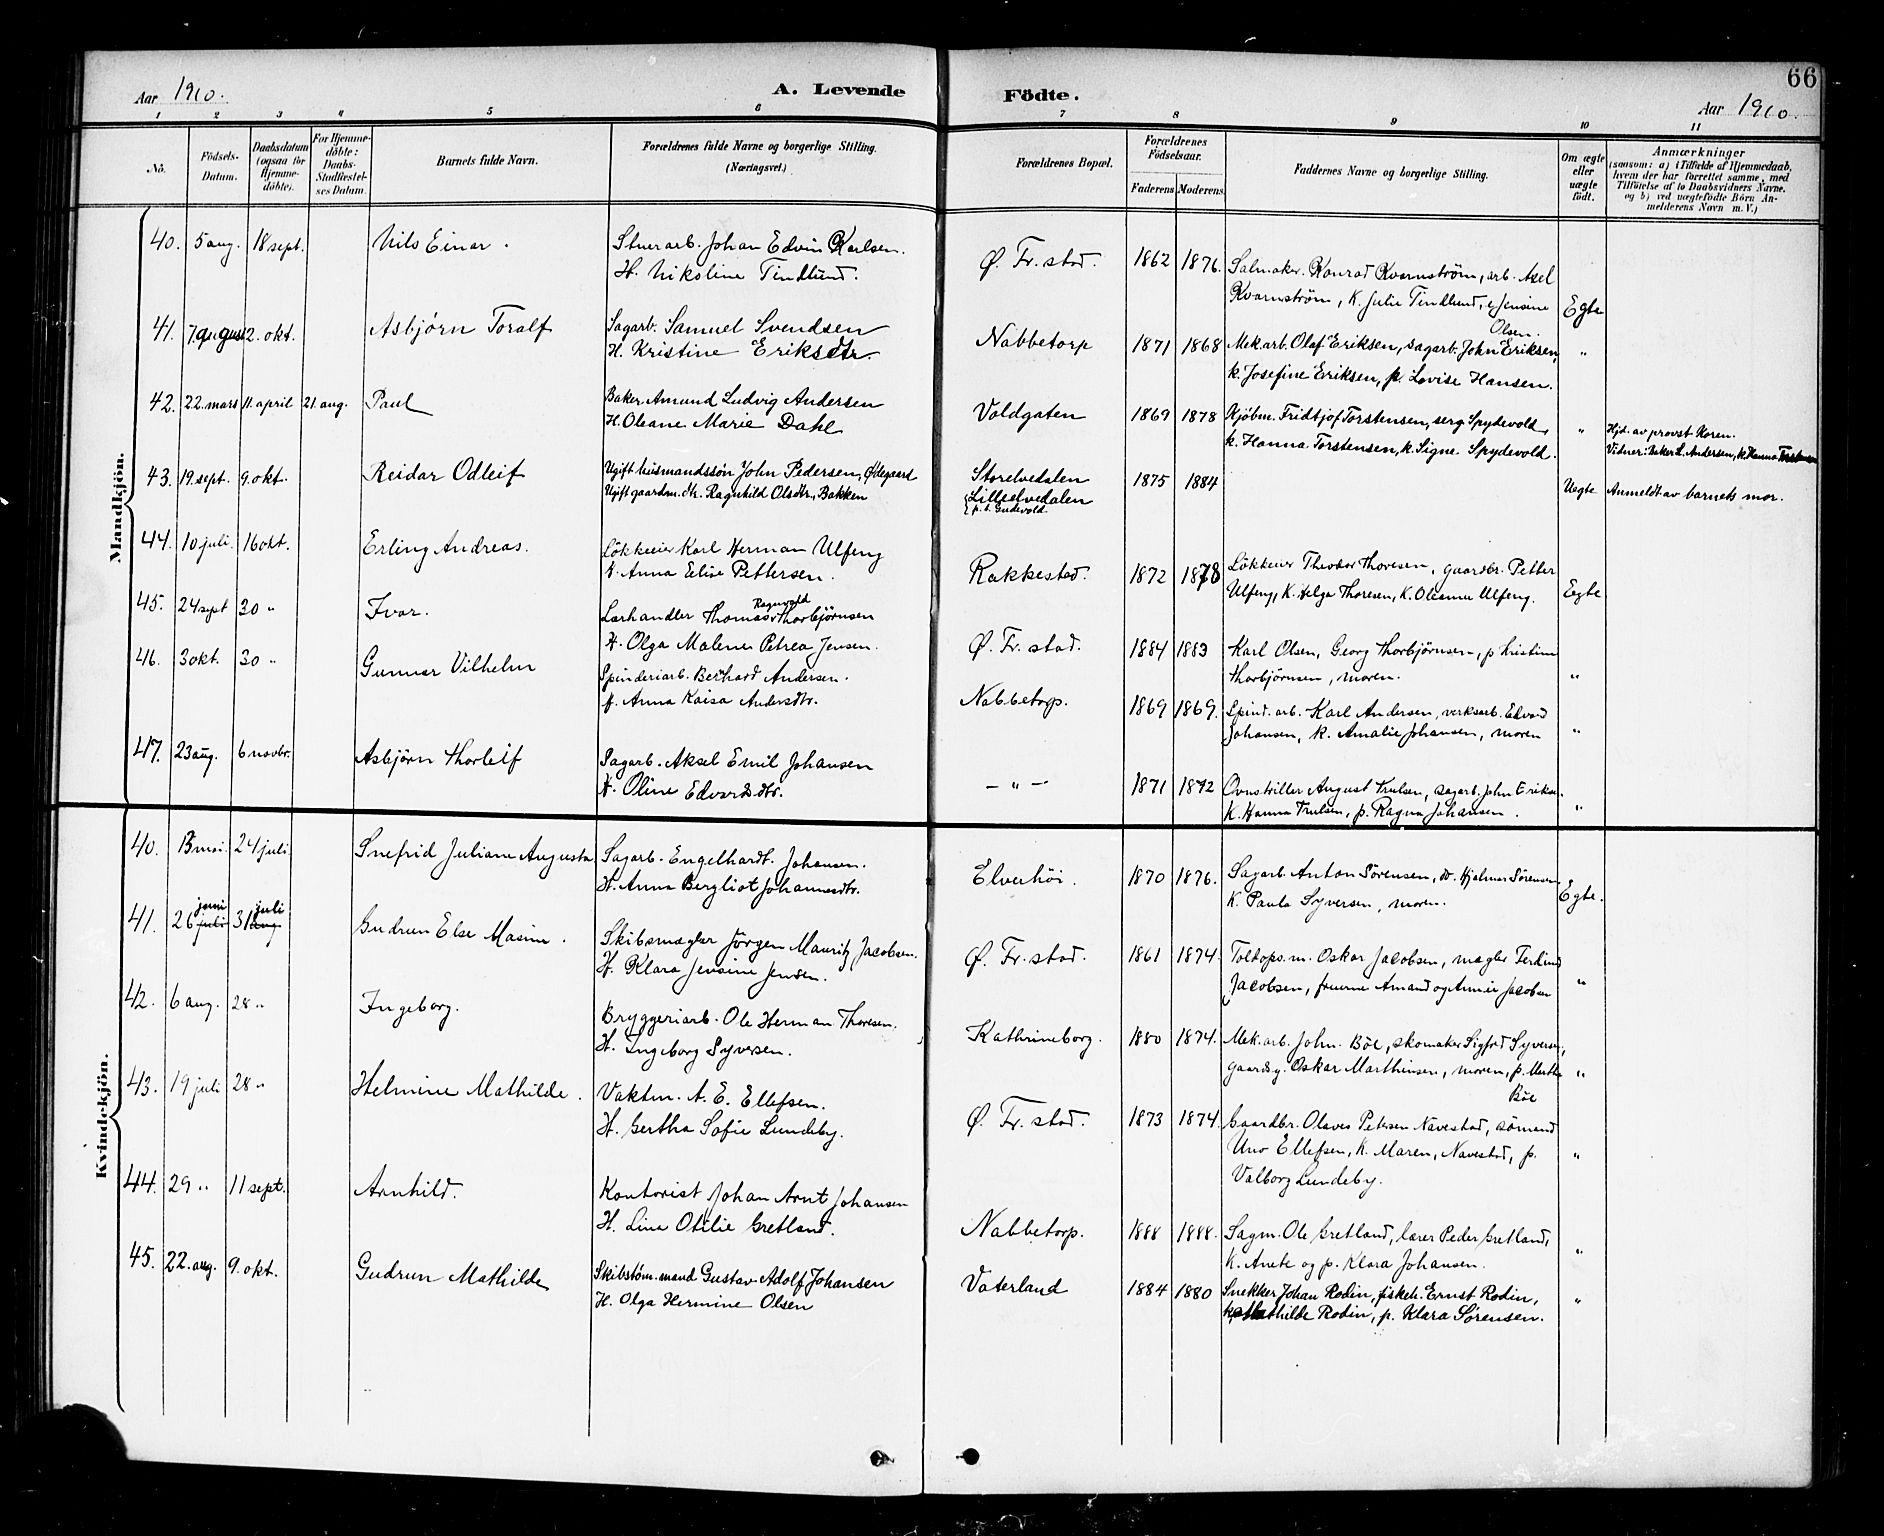 66
Aar 1910.
A. Levende
Födte.
Aar 1910.
1 2 3 4 5 6 7 8 9 10 11
No.
Födsels-
Datum.
Daabsdatum
(ogsaa for
Hjemme-
döbte).
For Hjemme-
döbte:
Daabs-
Stadfæstel-
ses Datum.
Barnets fulde Navn.
Forældrenes fulde Navne og borgerlige Stilling.
(Næringsvei.)
Forældrenes Bopæl.
Forældrenes
Födselsaar.
Faderens Moderens
Faddernes Navne og borgerlige Stilling.
Om ægte
eller
uægte
födt.
Anmærkninger
(saasom: a) i Tilfælde af Hjemmedaab,
hvem der har forrettet samme, med
Tilföielse af to Daabsvidners Navne,
og b) ved uægtefödte Börn An-
melderens Navn m. V.)
Mandkjön.
40. 5 aug. 18 sept. Nils Einar. Stuerarb. Johan Edvin Karlsen.
H. Nikoline Tindlund.
Ø. Fr. stad. 1862 1876. Salmaker. Konrad Kvarnström, arb. Axel
Kvarnström, k. Julie Tindlund, Jensine
Olsen. Egte
41. 7. august 2. okt. Asbjørn Toralf Sagarb. Samuel Svendsen
H. Kristine Eriksdtr
Nabbetorp 1871 1868 Mek. arb. Olaf Eriksen, sagarb. John Eriksen,
k. Josefine Eriksen, p. Lovise Hansen. "
42. 22. mars 11. april 21. aug. Paul Baker Amund Ludvig Andersen
H. Oleane Marie Dahl
Voldgaten 1869 1878 Kjöbm. Fridtjof Torstensen, serg. Spydevold,
k. Hanna Torstensen, k. Signe Spydevold. "
Hjd. av provst Koren.
Vidner: Baker L. Andersen, k. Hanna
43. 19. sept. 9. okt. Reidar Odleif Ugift husmandssøn John Pedersen, Ødegaard
Ugift gaardm. dtr. Ragnhild Olsdtr., Bakken
Storelvedalen
Lilleelvedalen
p. t. Gudevold.
1875 1884 Uegte Anmeldt av barnets mor.
44. 10 juli. 16 okt. Erling Andreas. Lökkeeier Karl Herman Ulfeng
H. Anna Elise Pettersen.
Rakkestad. 1872 1878 Lökkeeier Theodor Thoresen, gaardbr. Petter
Ulfeng, K. Helga Thoresen, K. Oleanna Ulfeng. Egte
45. 24 sept 30 " Ivar. Lærhandler Thomas Ragnvald Thorbjörnsen
H. Olga Malene Petrea Jensen.
Ø. Fr. stad. 1884 1883 Karl Olsen, Georg Thorbjörnsen, p Kristine
Thorbjörnsen, moren. "
46. 3 okt. 30 " Gunnar Vilhelm Spinderiarb. Berhard Andersen.
H. Anna Kaisa Andersdtr.
Nabbetorp. 1869 1869. Spind. arb. Karl Andersen, verksarb. Edvard
Johansen, K. Amalie Johansen, moren "
47. 23 aug. 6 novbr. Asbjörn Thorleif Sagarb. Aksel Emil Johansen
H. Oline Edvardsdtr.
– " – 1871 1872 Ovnstiller August Trulsen, sagarb. John Eriksen.
K. Hanna Trulsen, p. Ragna Johansen. "
Kvindekjön.
40. 13 mai. 24 juli. Snefrid Juliane Augusta Sagarb. Engelhardt Johansen.
H. Anna Bergliot Johannesdtr.
Elverhöi. 1870 1876. Sagarb. Anton Sörensen, do. Hjalmar Sörensen
K. Paula Syversen, moren. Egte.
41. 26 juni juli 31 juli aug Gudrun Else Marie. Skibsmægler Jörgen Mauritz Jacobsen.
H. Klara Jensine Jensen.
Ø. Fr. stad. 1861 1874. Toldops. m. Oskar Jacobsen, mægler Ferdinand
Jacobsen, fruerne Amanda og Annie Jacobsen "
42. 6 aug. 28 " Ingeborg. Bryggeriarb. Ole Herman Thoresen.
H. Ingeborg Syversen.
Kathrineborg. 1880 1874. Mek. arb. John Böe, skomaker Sigfrd Syversen,
gaardsg. Oskar Marthinsen, moren, p. Martha
Böe "
43. 19 juli 28 " Helmine Mathilde. Vaktm. A. E. Ellefsen.
H. Bertha Sofie Lundeby.
Ø. Fr. stad. 1873 1874. Gaardbr. Olaves Petersen Navestad, sömand
Uno Ellefsen, K. Maren, Navestad, p.
Valborg Lundeby. "
44. 29 " 11 sept. Arnhild. Kontorist Johan Arnt Johansen
H. Lina Otilie Gretland.
Nabbetorp. 1888 1888. Sagm. Ole Gretland, lærer Peder Gretland,
K. Anete og p. Klara Johansen. "
45. 22. aug. 9. okt. Gudrun Mathilde Skibstöm. mand Gustav Adolf Johansen
H. Olga Hermine Olsen
Vaterland 1884 1880 Snekker Johan Rodin, fisketr. Ernst Rodin,
k. Mathilde Rodin, p. Klara Sørensen. "